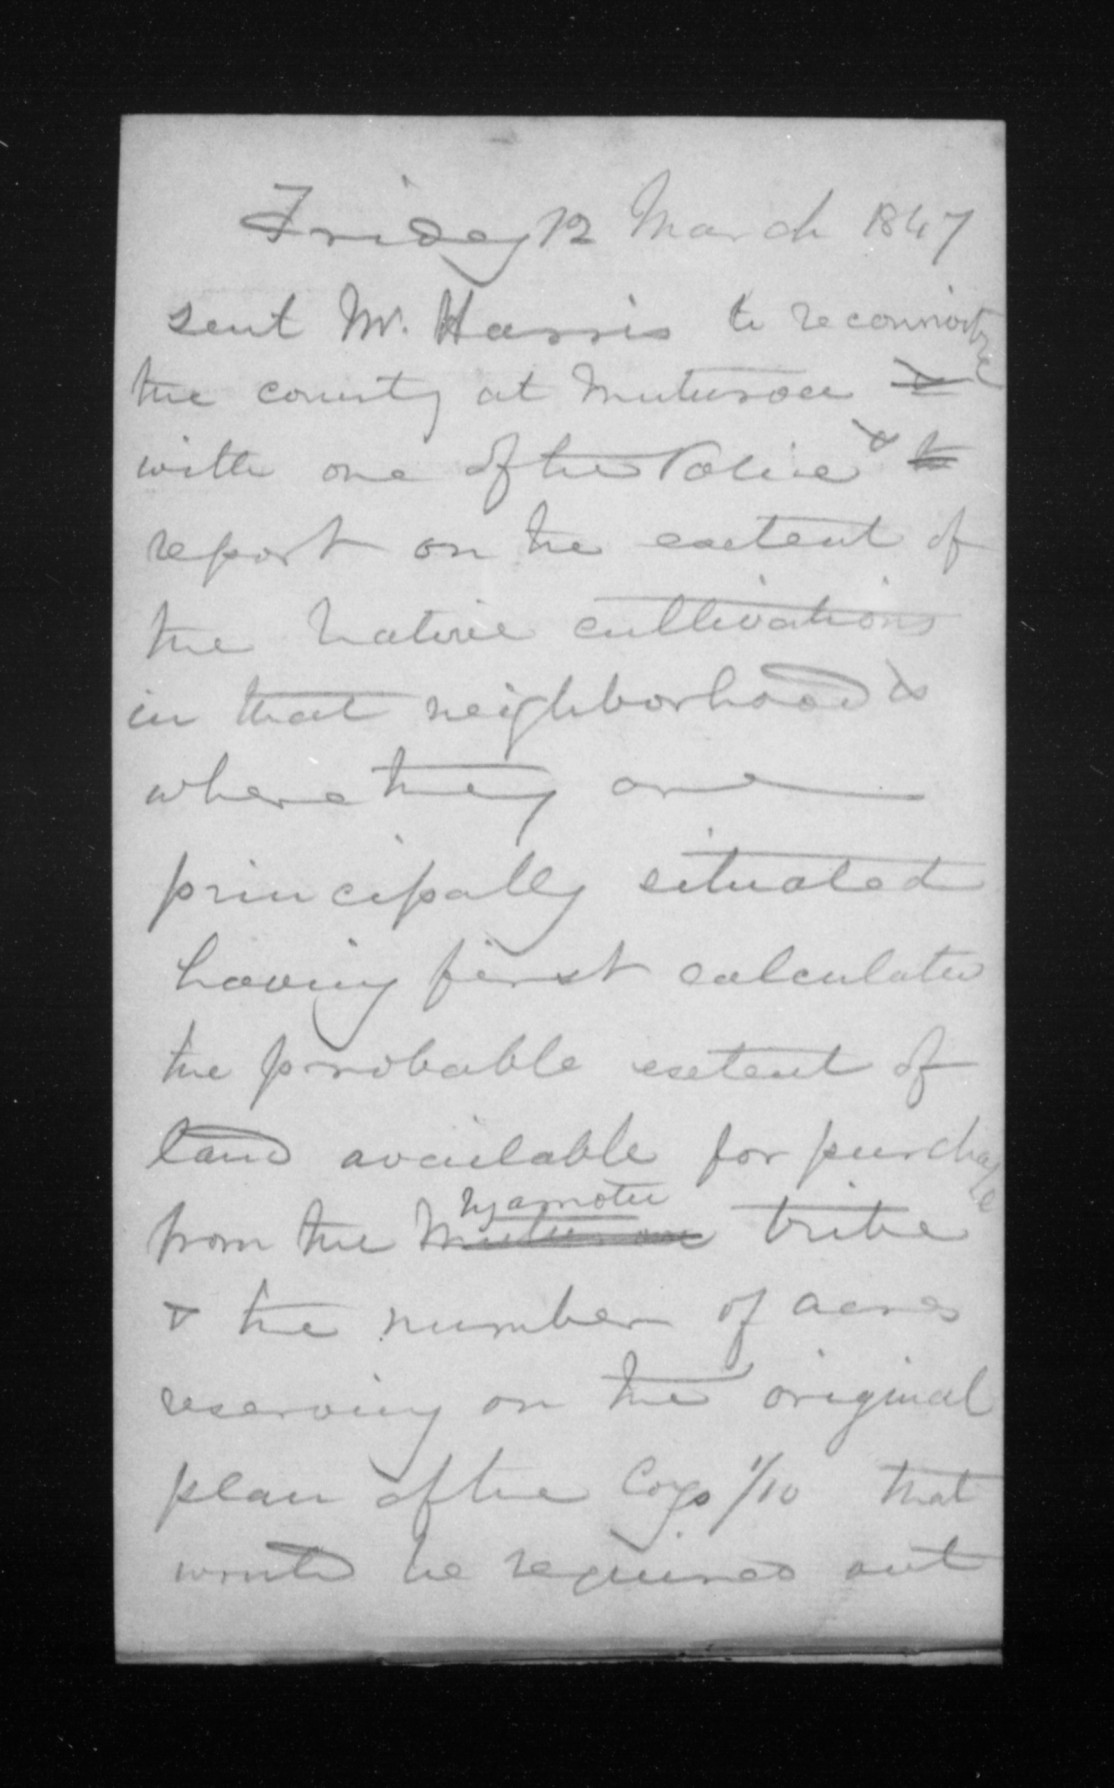 Friday 12 March 1847
sent Mr. Harris to reconnoitre
the country at Muturoa &
with one of the Police & to
report on the extent of
the Native cultivations
in that neighborhood &
where they are
principally situated
having first calculated
the probable extent of
land available for purchase
Ngamotu
from the Muturoa tribe
& the number of acres
reserving on the original
plan of the Coys 1/10 that
would be required out